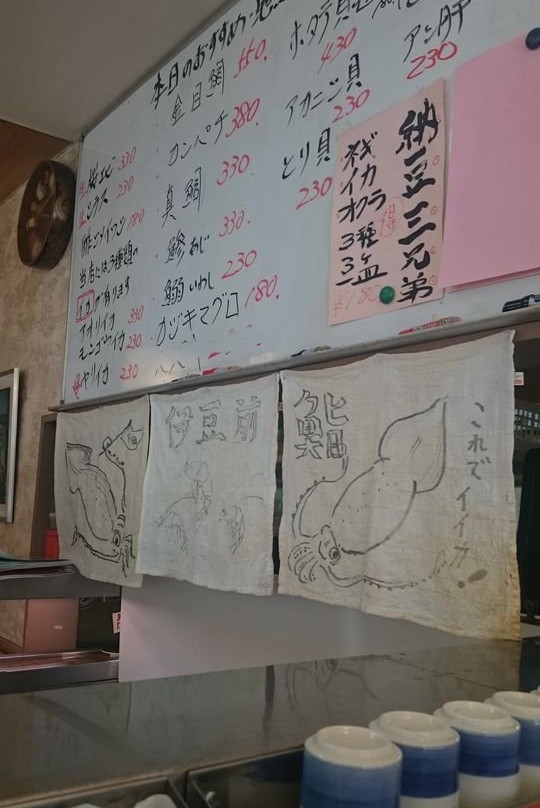 本日のおすすめ
金目鯛 550.
カンパチ 380.
真鯛 330
鯵 あじ 330.
鰯 いわし 230
カジキマグロ 180.
ホタテ貝 430
アカニシ貝 230
とり貝 230
アン肝 230
桜エビ 330
生シラス 230
180
当店には3種類の
イカが有ります
アオリイカ 330
モンゴウイカ 230
ヤリイカ 230
納豆三兄弟
ネギ
イカ
オクラ
3種
3ヶ
得
¥180
伊豆前
これでイイカ!